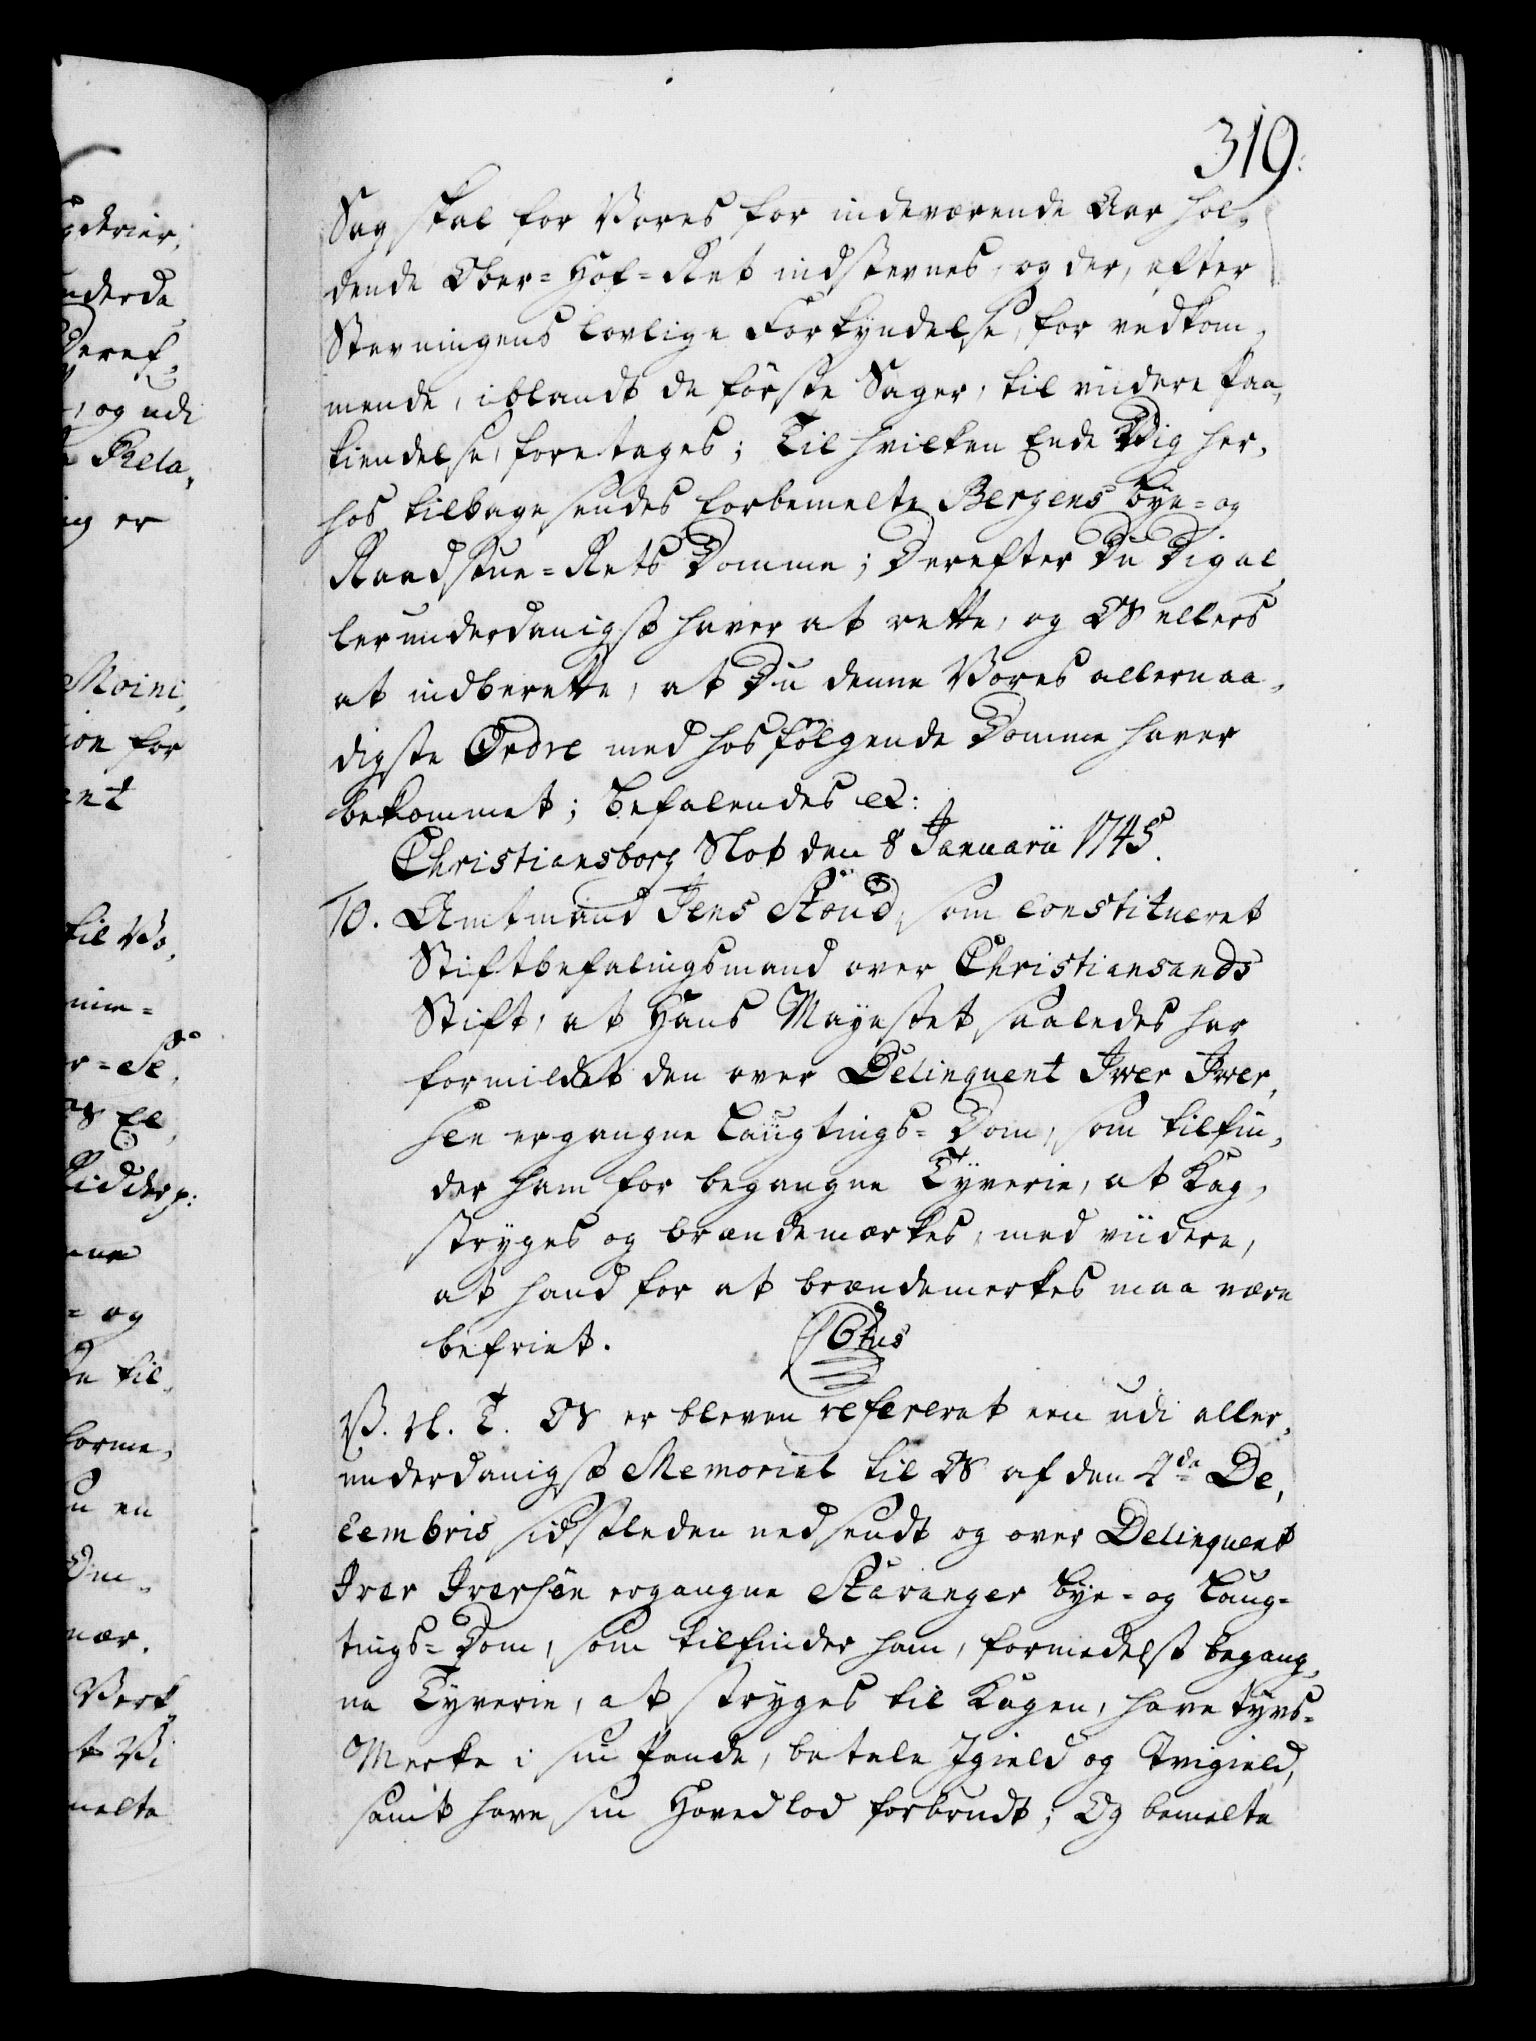 319.
Sag skal for Vores for indeværende Aar hol-
dende Ober-Hof-Ret indstevnes, og der, efter
Stevningens lovlige Forkyndelse, for vedkom-
mende, iblandt de første Sager, til viidere Paa-
kiendelse, foretages; Til hvilken Ende Dig her-
hos tilbage sendes forbemelte Bergens Bye- og
Raadstue-Rets Domme; Derefter Du Dig al-
lerunderdanigst haver at rette, og Os ellers
at indberette, at Du denne Vores allernaa-
digste Ordre med hosfölgende Domme haver
bekommet; Befalendes etc:
Christiansborg Slot den 8 Januarii 1745.
10. Amtmand Jens Skoud, som Constitueret
Stiftbefalingsmand over Christiansands
Stift, at Hans Mayestet saaledes har
formildet den over Delinquent Iver Iver-
sen ergangne Laugtings-Dom, som tilfin-
der ham for begangne Tyverie, at Kag-
stryges og brændemærkes, med viidere,
at hand for at brændemerkes maa være
befriet.
V. G. T. Os er bleven refereret een udi aller-
underdanigst Memorial til Os af den 2da De-
cembris sidstleden nedsendt og over Delinquent
Iver Iversen ergangne Stavanger Bye- og Laug-
tings-Dom, som tilfinder ham, formedelst begang-
ne Tyverie, at stryges til Kagen, have Tyvs-
Merke i sin Pande, betale Igield og Tvigield,
samt have sin Hovedlod forbrudt; Og bemelte
gderier,
nderda
Deref-
, og udi
Rela-
ig er
Moini-
ion for
ent
til Vo-
nim-
r-Se
Os El
Ridder p:
ene
- og
til-
forme-
en
Om-
nær.
Verk
t Vi
melte